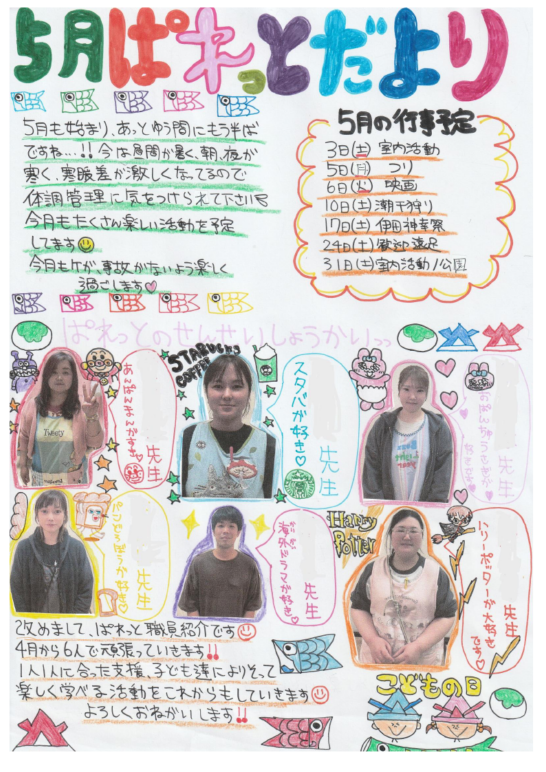 5月ぱれっとだより
5月も始まり、あっとゆう間にもう半ば
ですね…!!今は昼間が暑く、朝、夜が
寒く、寒暖差が激しくなってるので
体調管理に気をつけられて下さい
今月もたくさん楽しい活動を予定
してます
今月もケガ、事故がないよう楽しく
過ごします♡
5月の行事予定
3日(土) 室内活動
5日(月) つり
6日(火) 映画
10日(土) 潮干狩り
17日(土) 伊田神幸祭
24日(土) 歓迎遠足
31日(土) 室内活動/公園
ぱれっとのせんせいしょうかいっっ
あんぱんまんがすき♡
先生
STARBUCKS
COFFEE
スタバが好き♡
先生
おぱんちゅうさぎが
好きです♡
先生
パンどろぼうが好き♡
先生
海外ドラマが好き♡
先生
Harry
Potter
ハリーポッターが大好き
です♡
先生
改めまして、ぱれっと職員紹介です
4月から6人で頑張っていきます!!
1人1人に合った支援、子ども達によりそって
楽しく学べる活動をこれからもしていきます
よろしくおねがいします!!
こどもの日